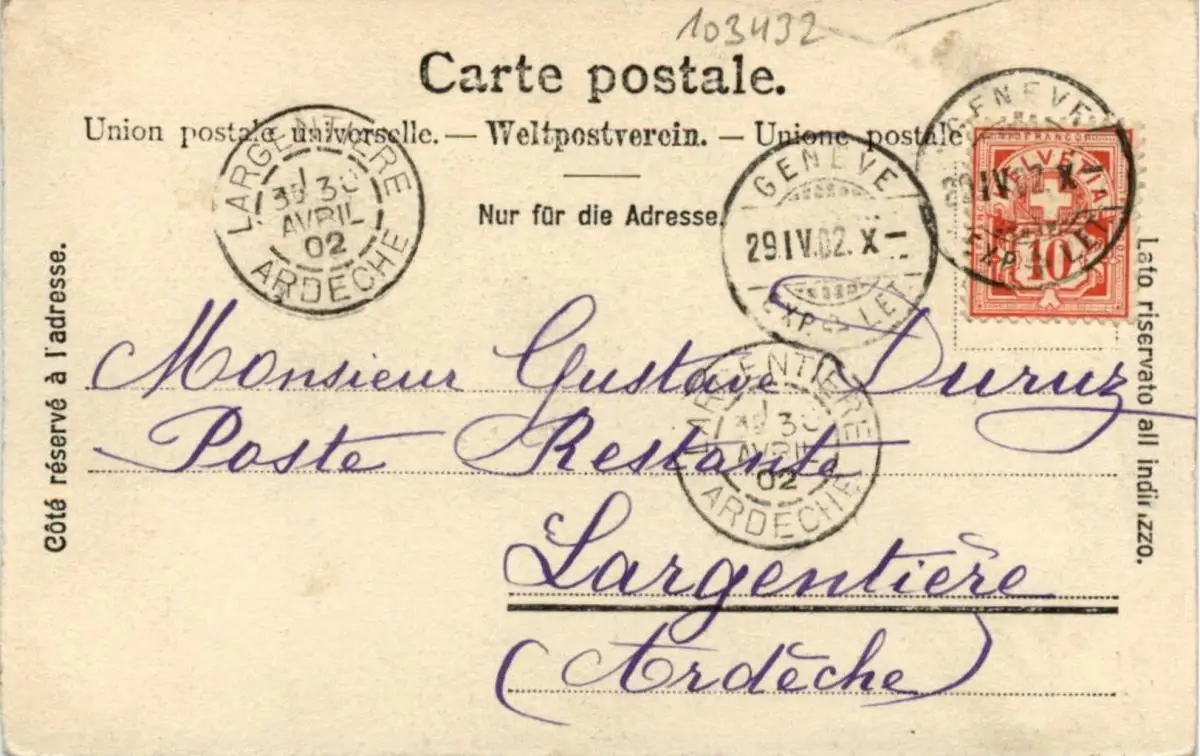 103432
Carte postale.
Union postale universelle. — Weltpostverein. — Unione postale
Nur für die Adresse.
Côté réservé à l'adresse.
Lato riservato all indirizzo.
LARGENTIERE
30
AVRIL
02
ARDECHE
GENEVE
29.IV.02. X
EXP. LET.
GENEVE
IV.02. X
EXP. LET.
FRANCO
HELVETIA
10
Monsieur Gustave Duruz
Poste Restante
Largentière
(Ardèche)
LARGENTIERE
30
AVRIL
02
ARDECHE